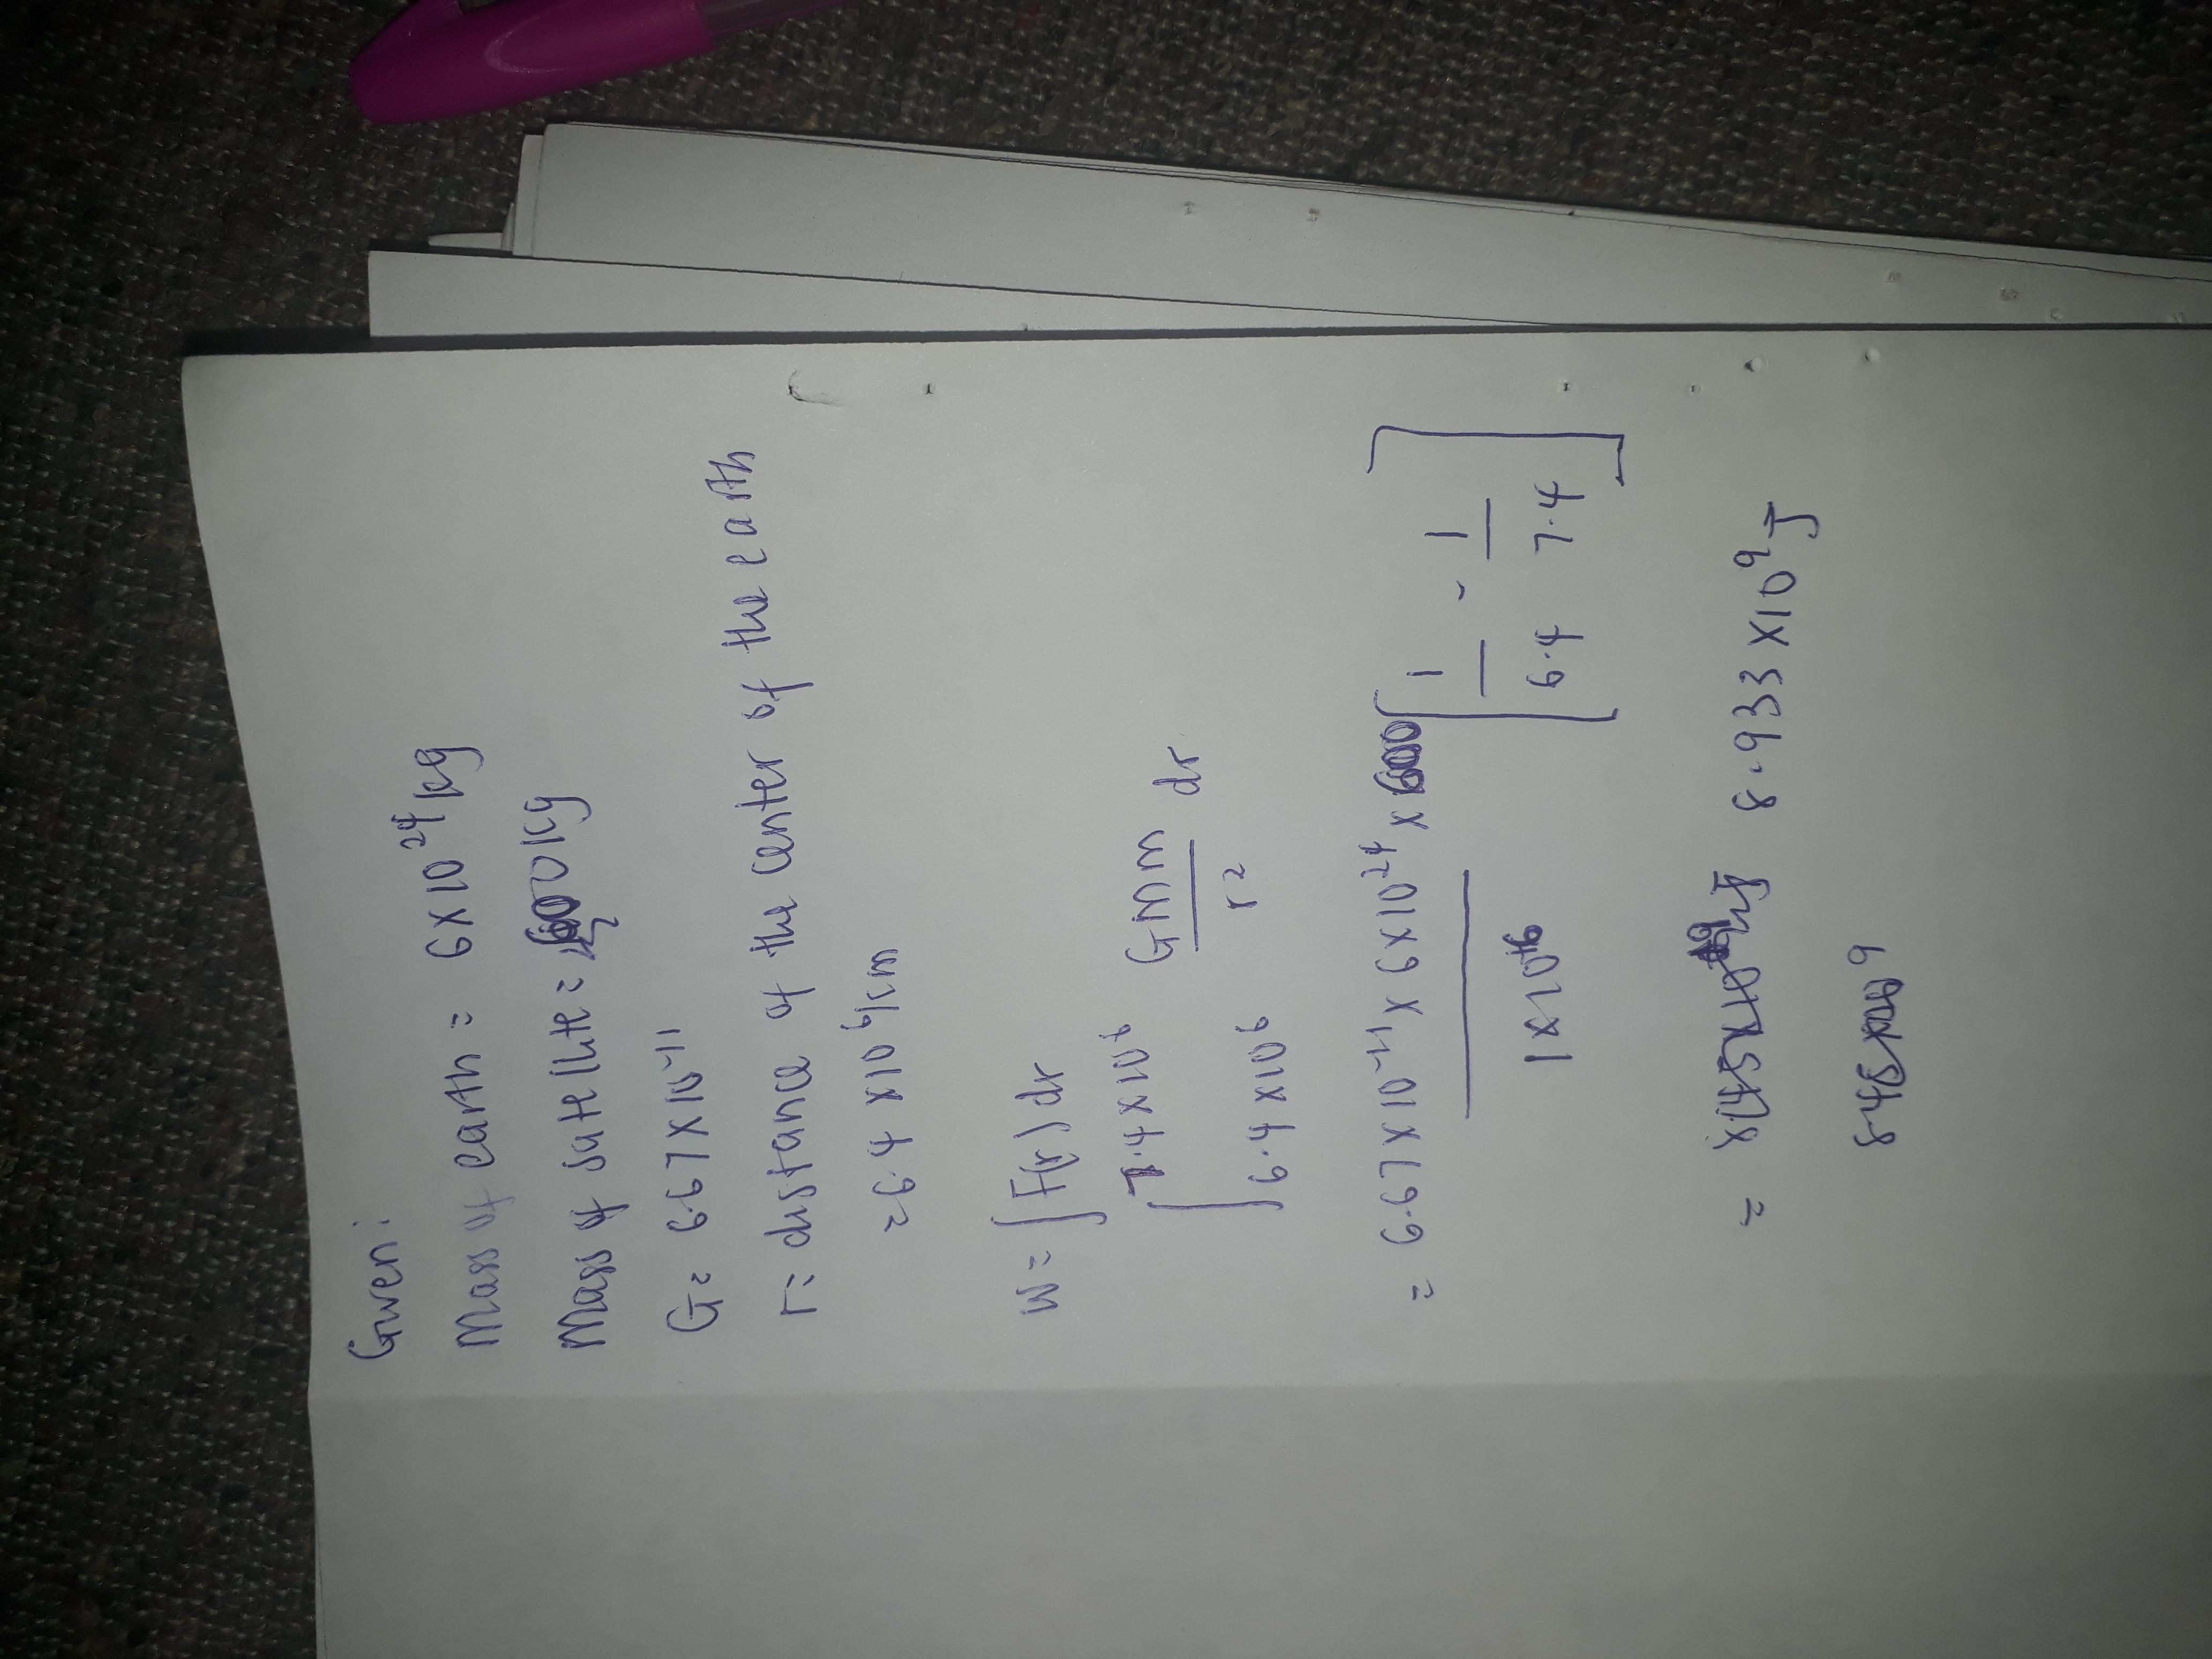 Given:
Mass of earth = 6 x 10^24 kg
Mass of satellite = kg
G = 6.67 x 10^-11
r = distance of the center of the earth
= 6.4 x 10^6 km
W = ∫ F(r) dr
∫_{6.4 x 10^6}^{7.4 x 10^6} GMm/r^2 dr
= (6.67 x 10^-11 x 6 x 10^24 x 600)/(1 x 10^6) [1/6.4 - 1/7.4]
= 8.933 x 10^9 J